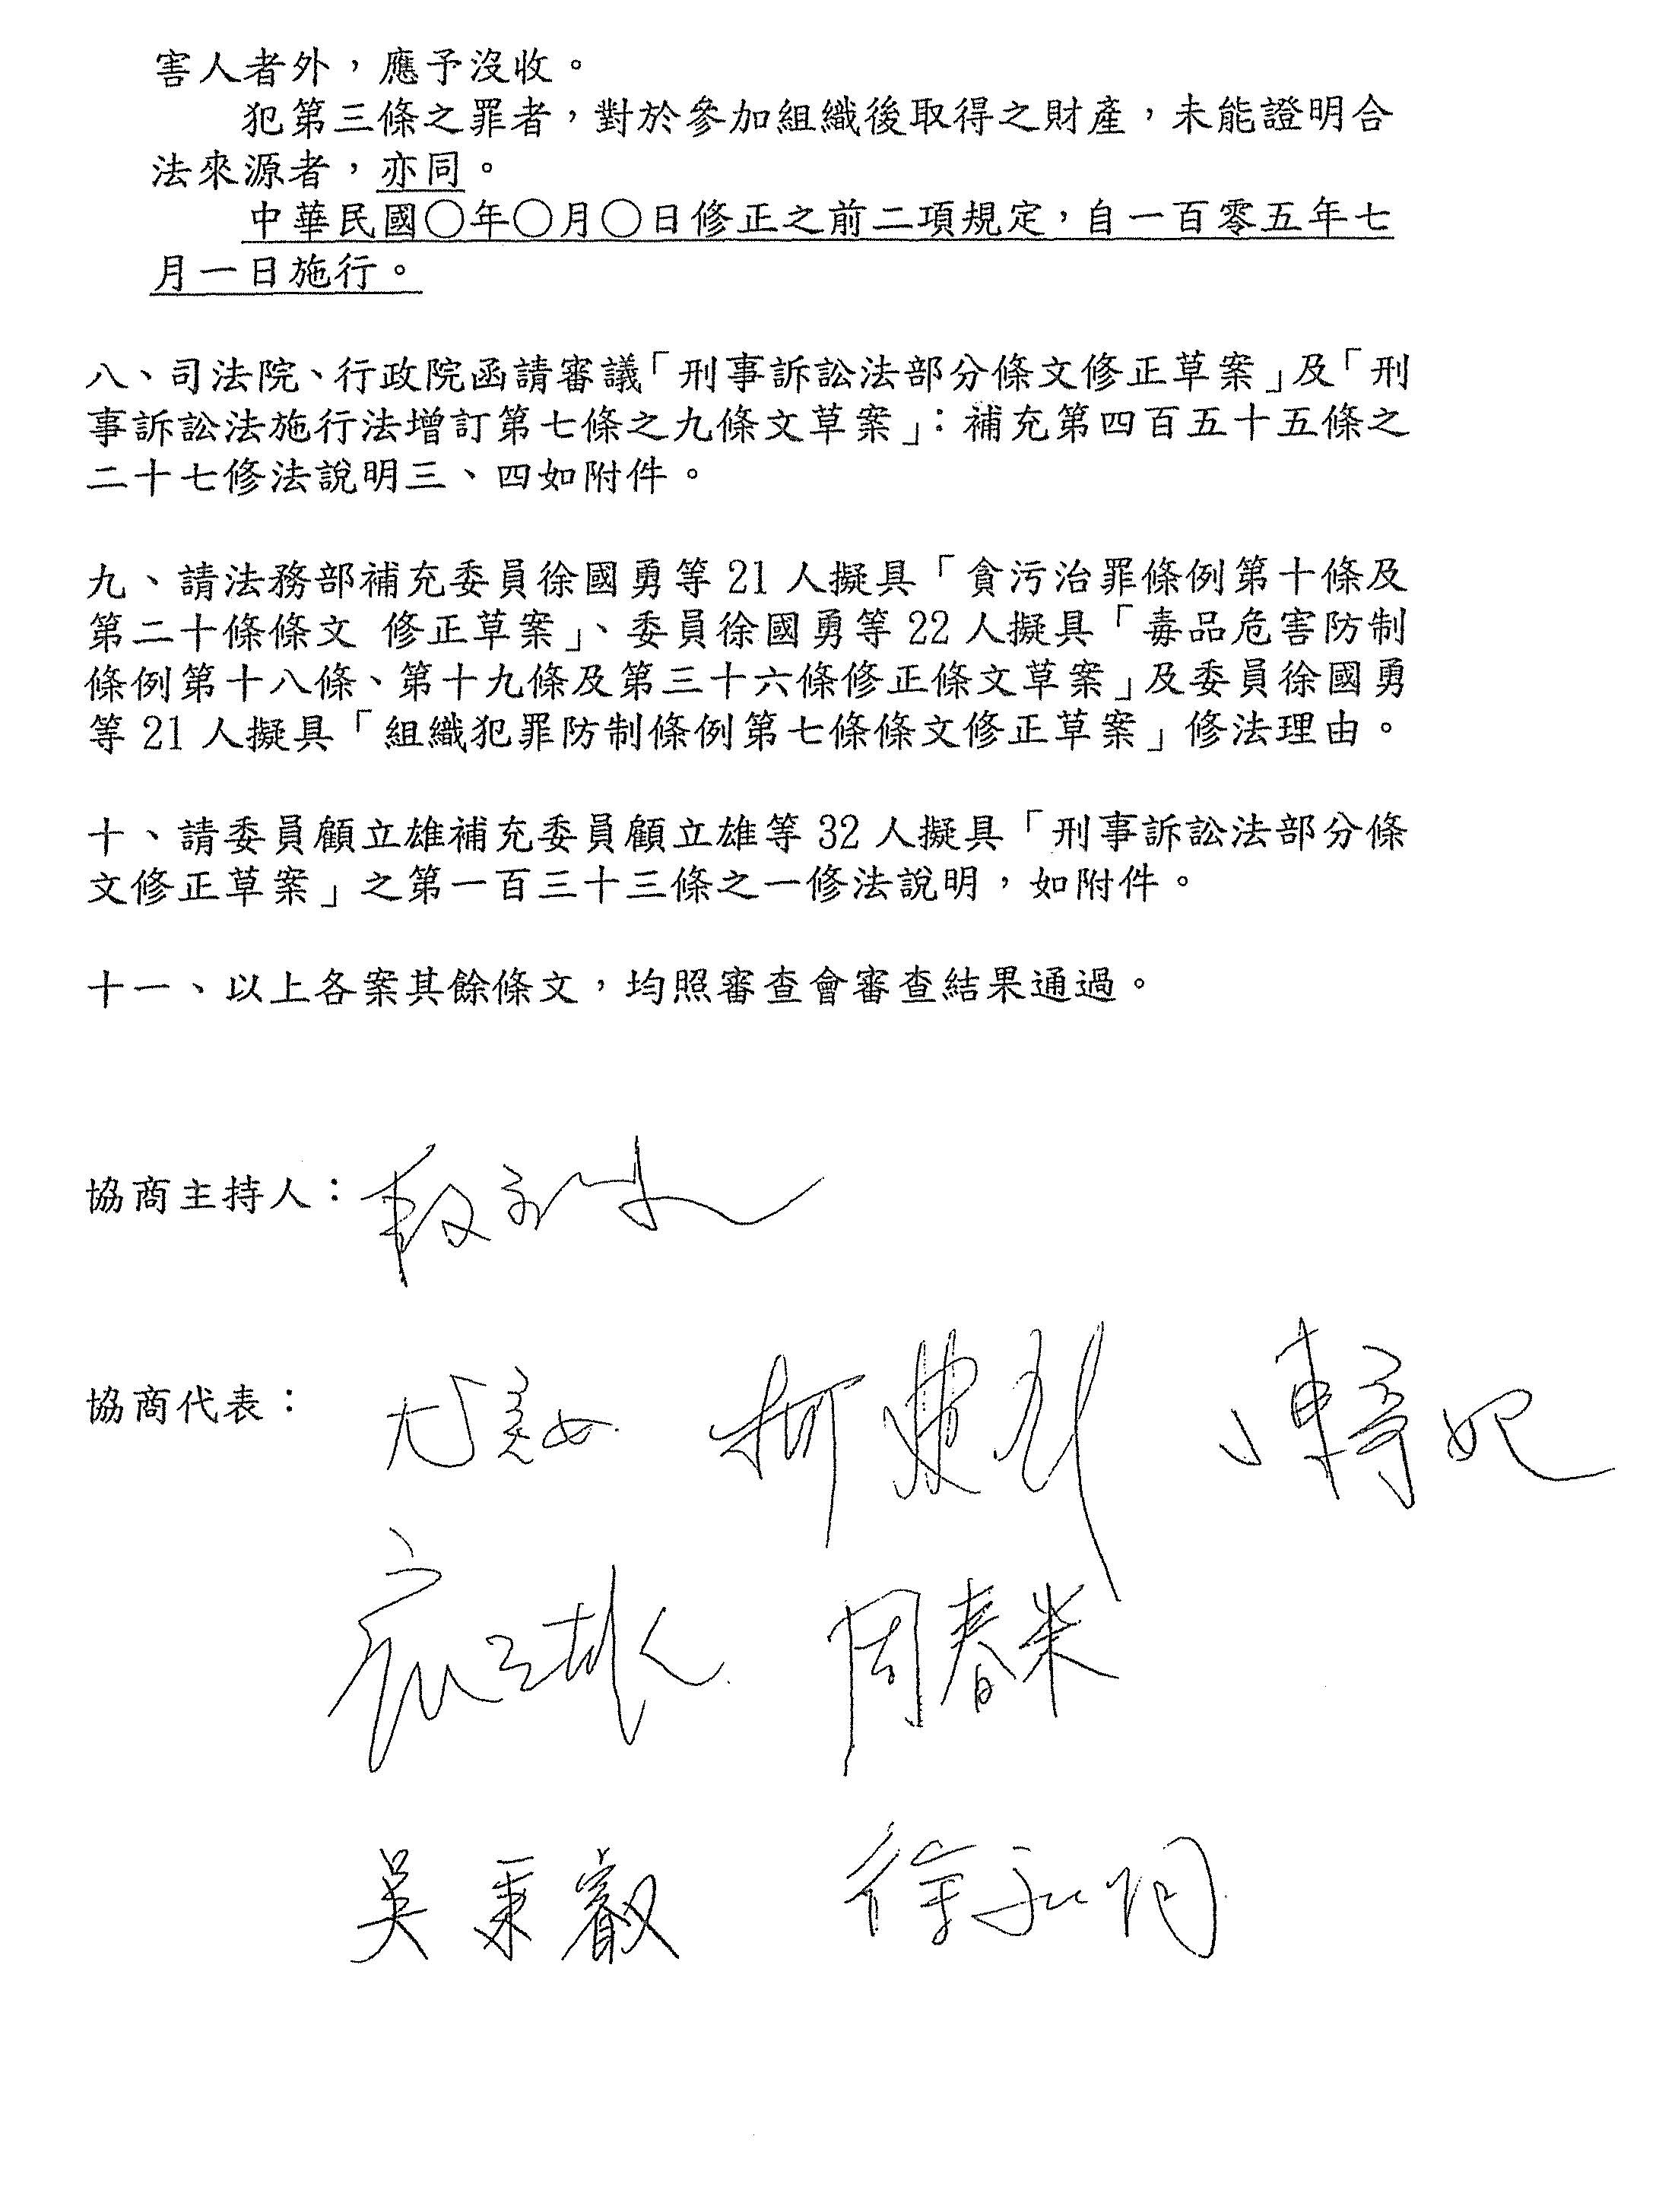 害人者外，應予沒收。
犯第三條之罪者，對於參加組織後取得之財產，未能證明合
法來源者，亦同。
中華民國○年○月○日修正之前二項規定，自一百零五年七
月一日施行。
八、司法院、行政院函請審議「刑事訴訟法部分條文修正草案」及「刑
事訴訟法施行法增訂第七條之九條文草案」：補充第四百五十五條之
二十七修法說明三、四如附件。
九、請法務部補充委員徐國勇等21人擬具「貪污治罪條例第十條及
第二十條條文 修正草案」、委員徐國勇等22人擬具「毒品危害防制
條例第十八條、第十九條及第三十六條修正條文草案」及委員徐國勇
等21人擬具「組織犯罪防制條例第七條條文修正草案」修法理由。
十、請委員顧立雄補充委員顧立雄等32人擬具「刑事訴訟法部分條
文修正草案」之第一百三十三條之一修法說明，如附件。
十一、以上各案其餘條文，均照審查會審查結果通過。
協商主持人：段宜康
協商代表：尤美女 柯建銘 陳亭妃
顧立雄 周春米
吳秉叡 徐永明